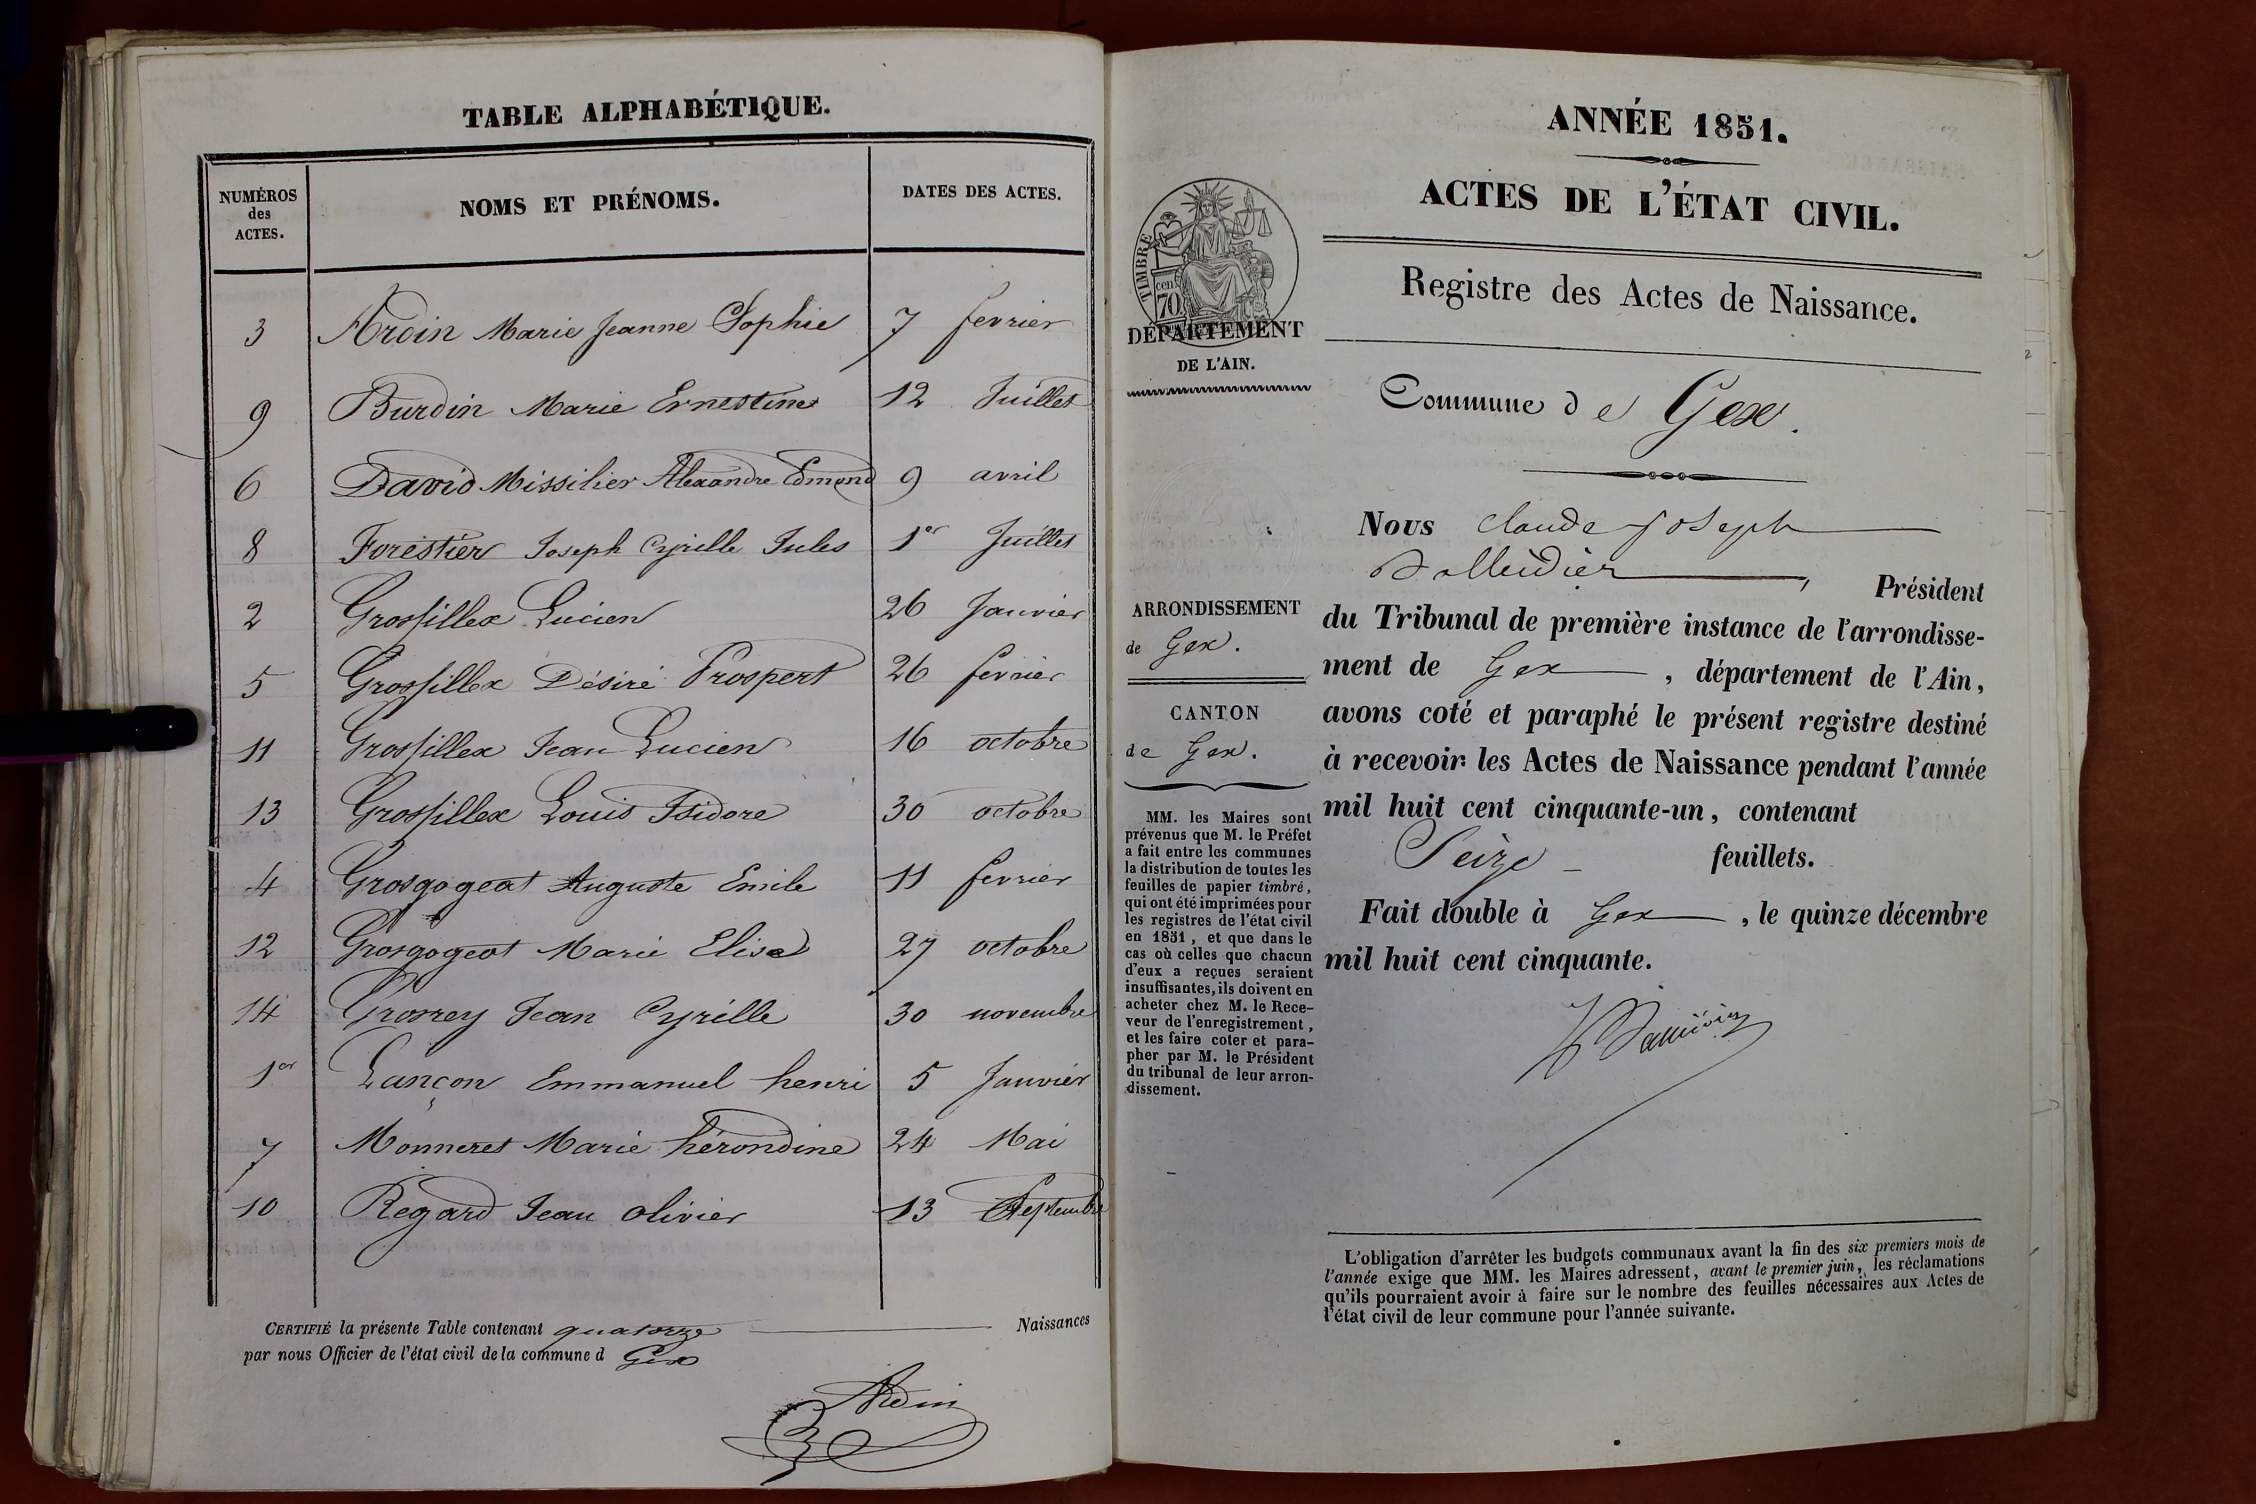 TABLE ALPHABÉTIQUE.
NUMÉROS
des
ACTES.
NOMS ET PRÉNOMS.
DATES DES ACTES.
3 Ardin Marie Jeanne Sophie 7 fevrier
9 Burdin Marie Ernestine 12 Juillet
6 David Missilier Alexandre Edmond 9 avril
8 Forestier Joseph Cyrille Jules 1er Juillet
2 Grosfillex Lucien 26 Janvier
5 Grosfillex Désiré Prospert 26 fevrier
11 Grosfillex Jean Lucien 16 octobre
13 Grosfillex Louis Isidore 30 octobre
4 Grosgogeat Auguste Emile 11 fevrier
12 Grosgogeat Marie Elise 27 octobre
14 Grosrey Jean Cyrille 30 novembre
1er Lançon Emmanuel henri 5 Janvier
7 Monneret Marie hérondine 24 Mai
10 Regard Jean olivier 13 Septembre
CERTIFIÉ la présente Table contenant quatorze Naissances
par nous Officier de l'état civil de la commune d Gex
Ardin
ANNÉE 1851.
ACTES DE L'ÉTAT CIVIL.
Registre des Actes de Naissance.
TIMBRE
cen.
70
DÉPARTEMENT
DE L'AIN.
Commune de Gex.
Nous Claude Joseph
Président
ARRONDISSEMENT
de Gex.
CANTON
de Gex.
MM. les Maires sont
prévenus que M. le Préfet
a fait entre les communes
la distribution de toutes les
feuilles de papier timbré,
qui ont été imprimées pour
les registres de l'état civil
en 1851, et que dans le
cas où celles que chacun
d'eux a reçues seraient
insuffisantes, ils doivent en
acheter chez M. le Rece-
veur de l'enregistrement,
et les faire coter et para-
pher par M. le Président
du tribunal de leur arron-
dissement.
du Tribunal de première instance de l'arrondisse-
ment de Gex, département de l'Ain,
avons coté et paraphé le présent registre destiné
à recevoir les Actes de Naissance pendant l'année
mil huit cent cinquante-un, contenant
Seize feuillets.
Fait double à Gex, le quinze décembre
mil huit cent cinquante.
L'obligation d'arrêter les budgets communaux avant la fin des six premiers mois de
l'année exige que MM. les Maires adressent, avant le premier juin, les réclamations
qu'ils pourraient avoir à faire sur le nombre des feuilles nécessaires aux Actes de
l'état civil de leur commune pour l'année suivante.